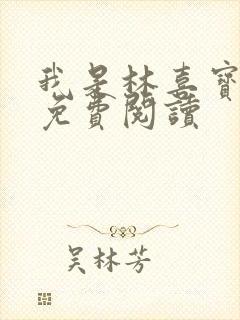 我是林喜寶
免費閱讀
吴林芳